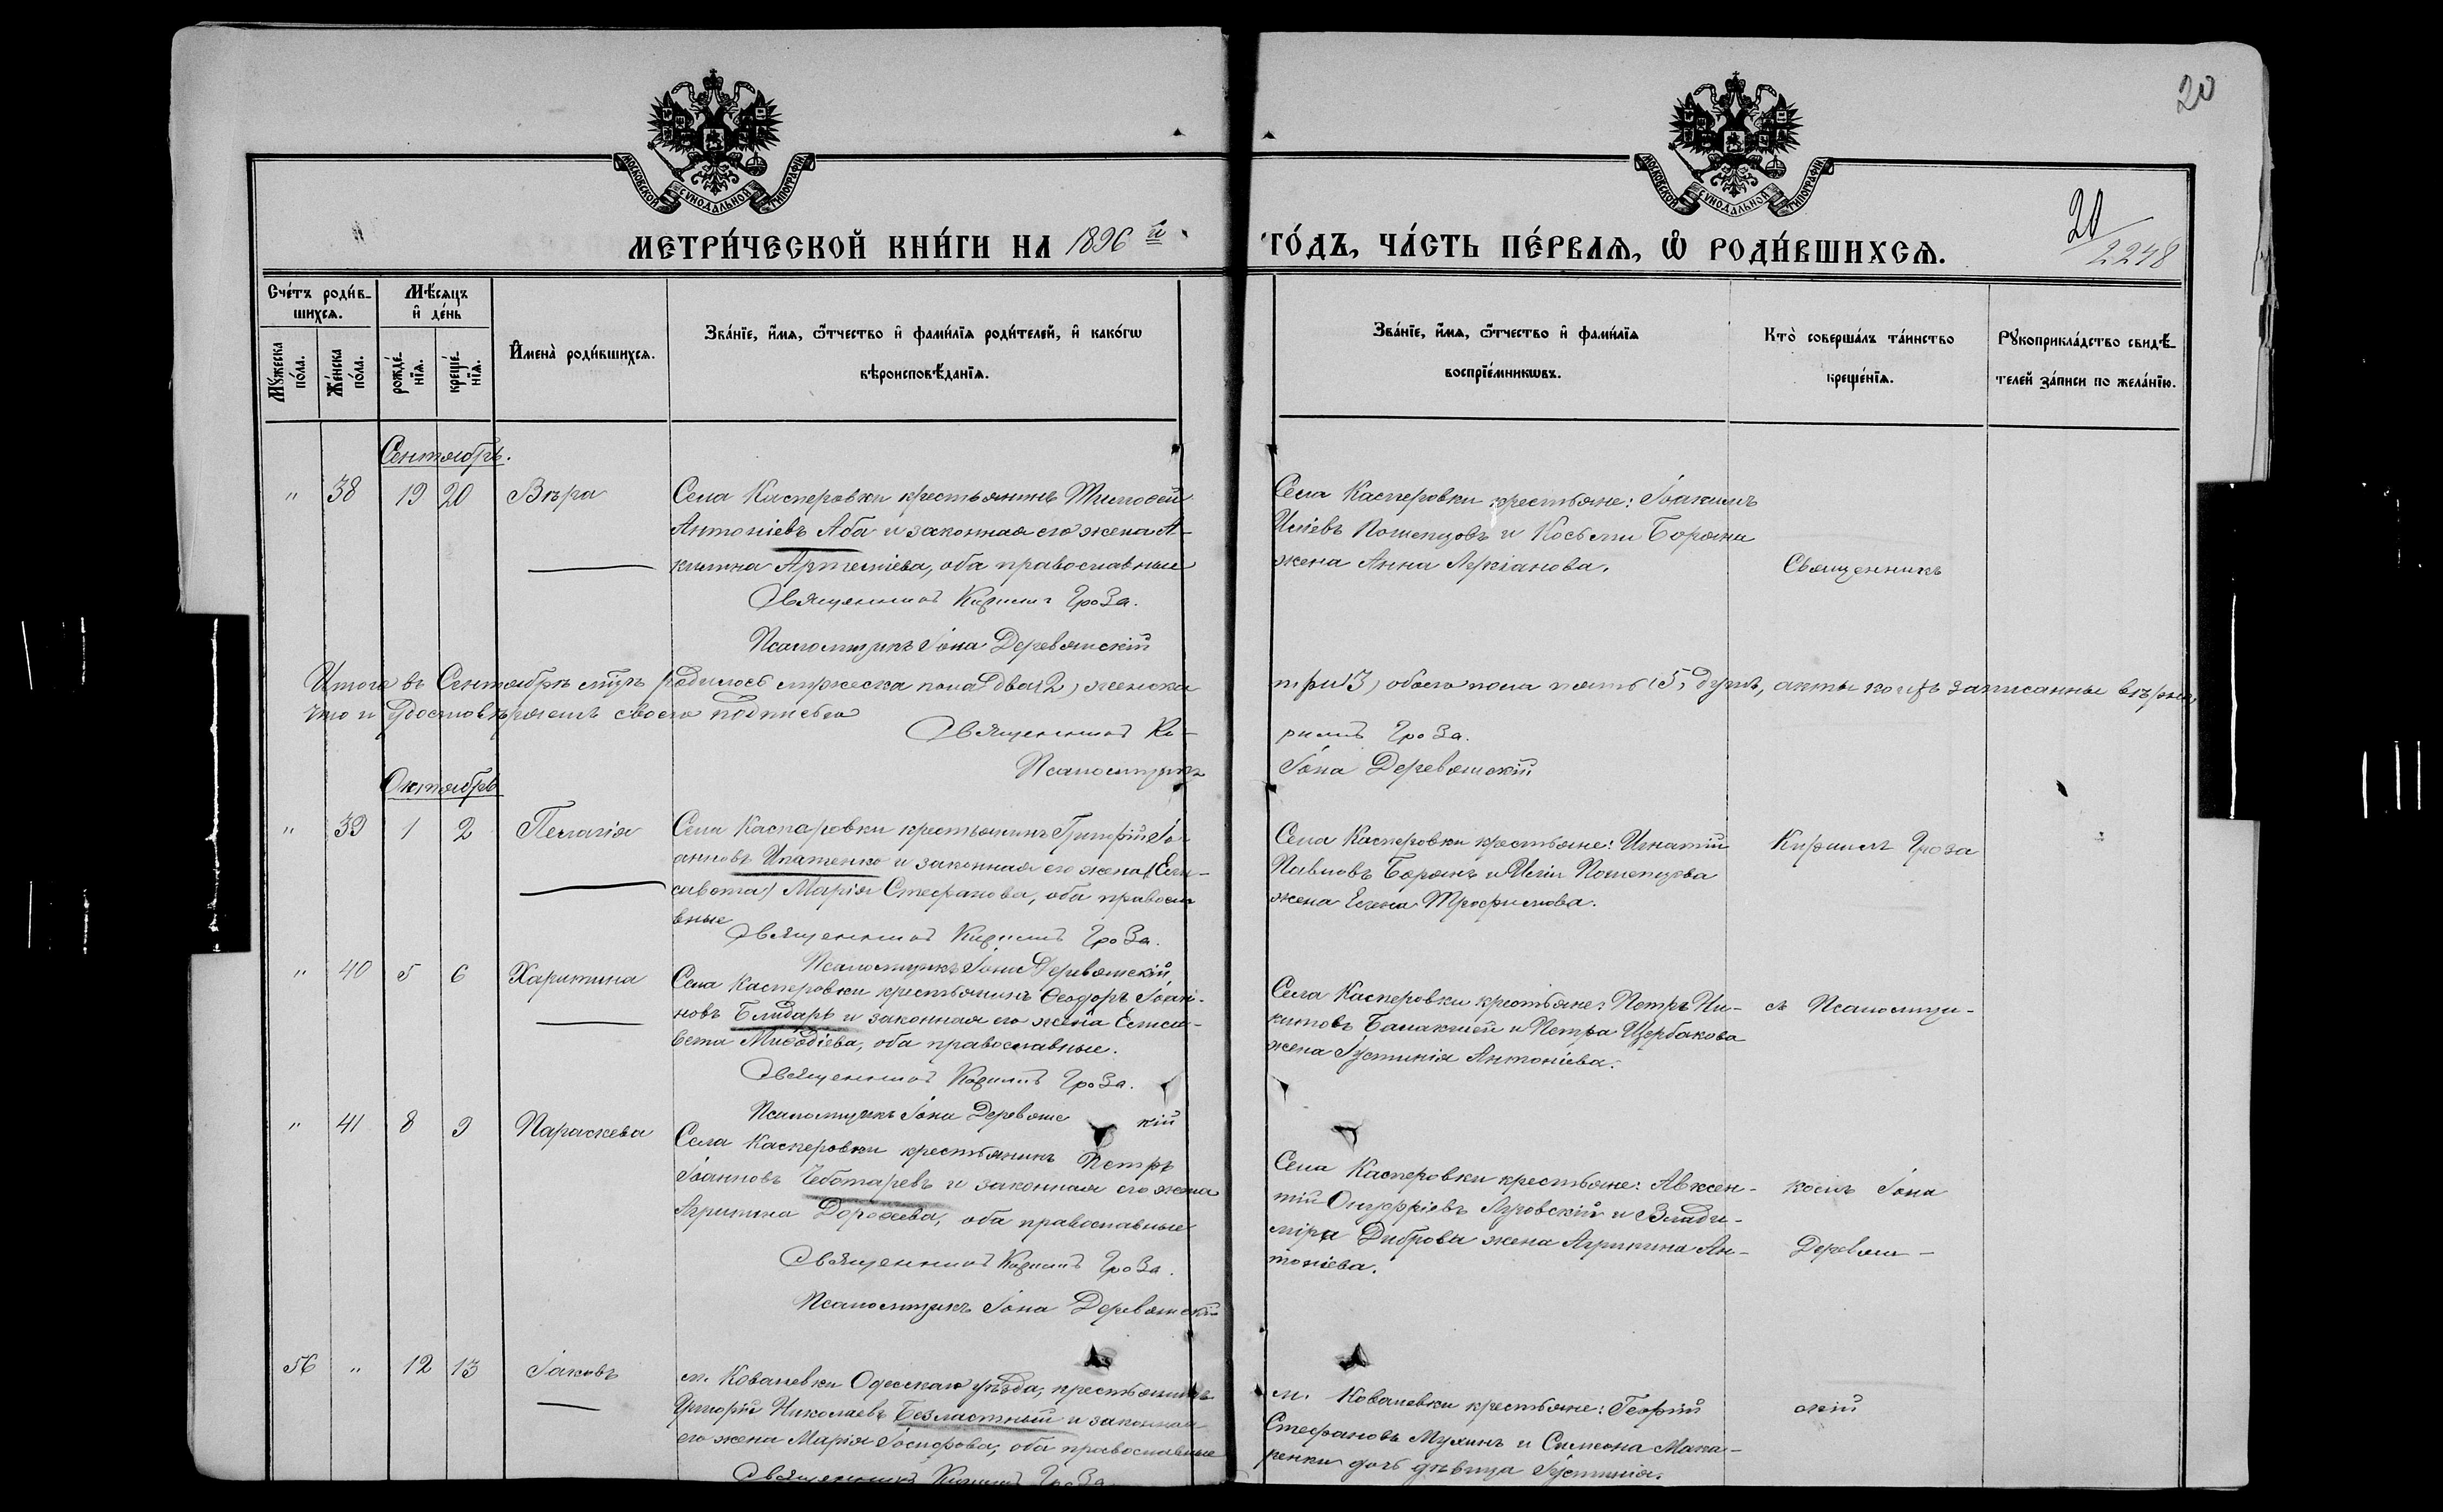 20
МОСКОВСКОЙ СѴНОДАЛЬНОЙ ТИПОГРАФІИ
МОСКОВСКОЙ СѴНОДАЛЬНОЙ ТИПОГРАФІИ
МЕТРИ́ЧЕСКОЙ КНИ́ГИ НА 1896 й
ГО́ДЪ, ЧА́СТЬ ПЕ́РВАѦ, Ѡ РОДИ́ВШИХСѦ.
20
2248
Сче́тъ роди́в-
шихсѧ.
Мѣ́сѧцъ
и҆ де́нь
Мꙋ́жеска
по́ла.
Же́нска
по́ла.
рожде́-
нїѧ.
креще́-
нїѧ.
И҆мена̀ роди́вшихсѧ.
Зва́нїе, и҆́мѧ, ѻ҆́тчество и҆ фами́лїѧ роди́телей, и҆ како́гѡ
вѣроисповѣ́данїѧ.
Зва́нїе, и҆́мѧ, ѻ҆́тчество и҆ фами́лїѧ
воспрїе́мникѡвъ.
Кто̀ соверша́лъ та́инство
креще́нїѧ.
Рꙋкоприкла́дство свидѣ́-
телей за́писи по жела́нїю.
Сентябрь.
" 38 19 20 Вѣра
Села Касперовки крестьянинъ Тимоѳей
Антоніевъ Аба и законная его жена А-
килина Артеміева, оба православные
Священникъ Кирилъ Гроза.
Псаломщикъ Іона Деревянскій
Села Касперовки крестьяне: Іоакимъ
Иліевъ Пошепцовъ и Косьмы Бороны
жена Анна
Священникъ
Итого въ Сентябрѣ мцѣ родилось мужеска пола два (2) женска
три (3) обоего пола пять (5) душъ, акты коихъ записанны вѣрно,
что и удостовѣряемъ своею подписью
Священникъ Ки-
рилъ Гроза.
Псаломщикъ
Іона Деревянскій
Октябрь
" 39 1 2 Пелагія
Села Касперовки крестьянинъ Григорій Іо-
анновъ Ипатенко и законная его жена (Ели-
савета) Марія Стефанова, оба правосла
вные
Священникъ Кирилъ Гроза.
Псаломщикъ Іона Деревянскій
Села Касперовки крестьяне: Игнатій
Павловъ Боронъ и Иліи Пошепцова
жена Елена Трофимова.
Кириллъ Гроза
" 40 5 6 Харитина
Села Касперовки крестьянинъ Ѳеодоръ Іоан-
новъ и законная его жена Елиса-
вета Меѳодіева, оба православные.
Священникъ Кирилъ Гроза.
Псаломщикъ Іона Деревянс кій
Села Касперовки крестьяне: Петръ Ни-
китовъ Балакчей и Петра Щербакова
жена Іустинія Антоніева.
съ Псаломщи-
" 41 8 9 Параскева
Села Касперовки крестьянинъ Петръ
Іоанновъ Чеботаревъ и законная его жена
Агрипина Дороѳеева, оба православные
Священникъ Кирилъ Гроза.
Псаломщикъ Іона Деревянскій
Села Касперовки крестьяне: Авксен-
тій Онуфріевъ и Влади-
міра Диброва жена Агрипина Ан-
тоніева.
комъ Іона
Деревян-
56 " 12 13 Іаковъ
м. Ковалевки Одесскаго уѣзда, крестьянинъ
Григорій Николаевъ Безластный и законная
его жена Марія Іосифова, оба православные
Священникъ Кирилъ Гроза
м. Ковалевки крестьяне: Георгій
Стефановъ Мухинъ и Симеона Мака-
ренки дочь дѣвица Іустинія.
скій